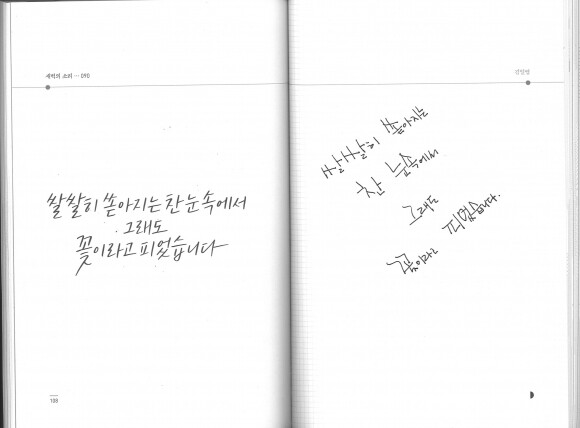 새벽의 소리 … 090
쌀쌀히 쏟아지는 찬 눈 속에서
그래도
꽃이라고 피었습니다
108
쌀쌀히 쏟아지는
찬 눈속에서
그래도
꽃이라고 피었습니다.